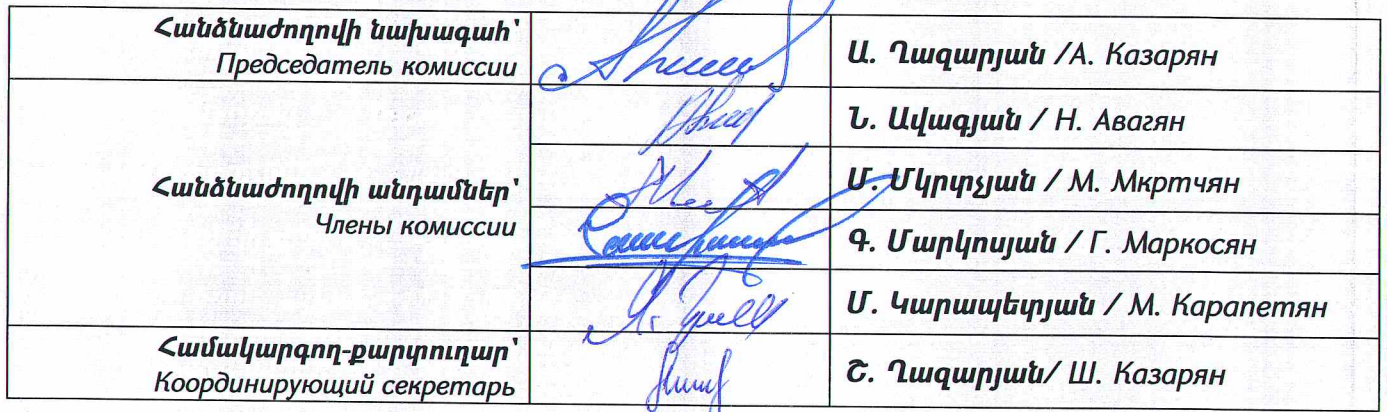 Հանձնաժողովի նախագահ՝
Председатель комиссии
Ա. Ղազարյան /А. Казарян
Ն. Ավագյան / Н. Авагян
Հանձնաժողովի անդամներ՝
Члены комиссии
Մ. Մկրտչյան / М. Мкртчян
Գ. Մարկոսյան / Г. Маркосян
Մ. Կարապետյան / М. Карапетян
Համակարգող-քարտուղար՝
Координирующий секретарь
Շ. Ղազարյան/ Ш. Казарян